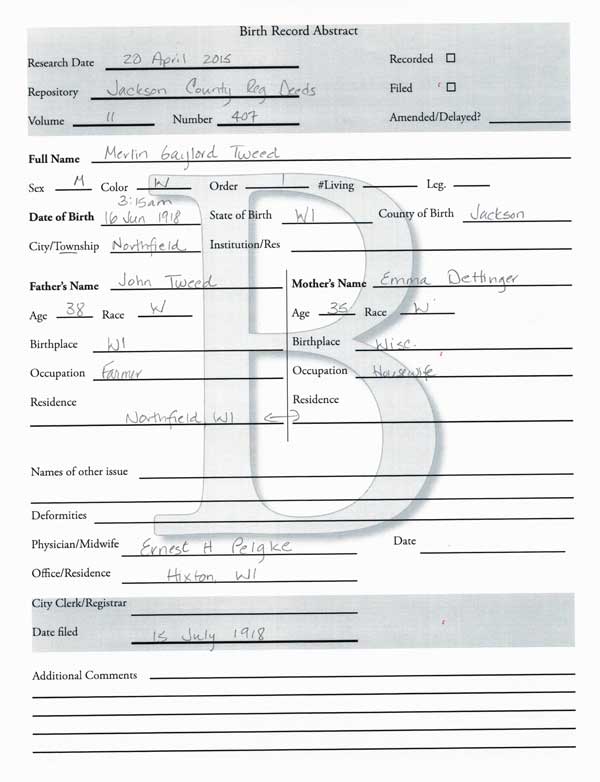 Birth Record Abstract
Research Date 20 April 2015 Recorded ☐
Repository Jackson County Reg Deeds Filed ☐
Volume 11 Number 407 Amended/Delayed?
Full Name Merlin Gaylord Tweed
Sex M Color W Order 1 #Living Leg.
3:15am
Date of Birth 16 Jun 1918 State of Birth WI County of Birth Jackson
City/Township Northfield Institution/Res
Father's Name John Tweed Mother's Name Emma Dettinger
Age 38 Race W Age 35 Race W
Birthplace WI Birthplace Wisc.
Occupation Farmer Occupation Housewife
Residence Residence
Northfield WI ↔
Names of other issue
Deformities
Physician/Midwife Ernest H Pelgke Date
Office/Residence Hixton, WI
City Clerk/Registrar
Date filed 15 July 1918
Additional Comments
B